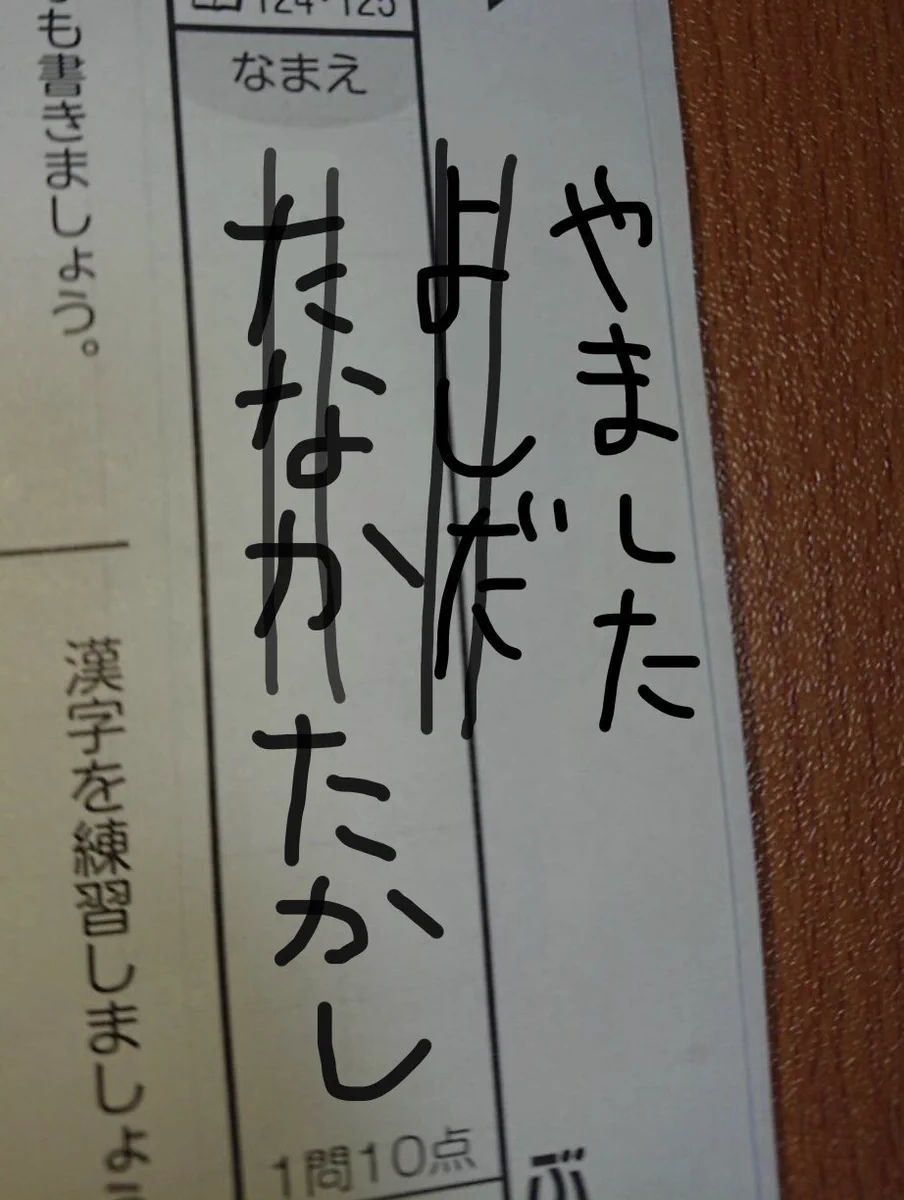 やました
よしだ
124・125
なまえ
たなかたかし
1問10点
も書きましょう。
漢字を練習しましょう
ぶ